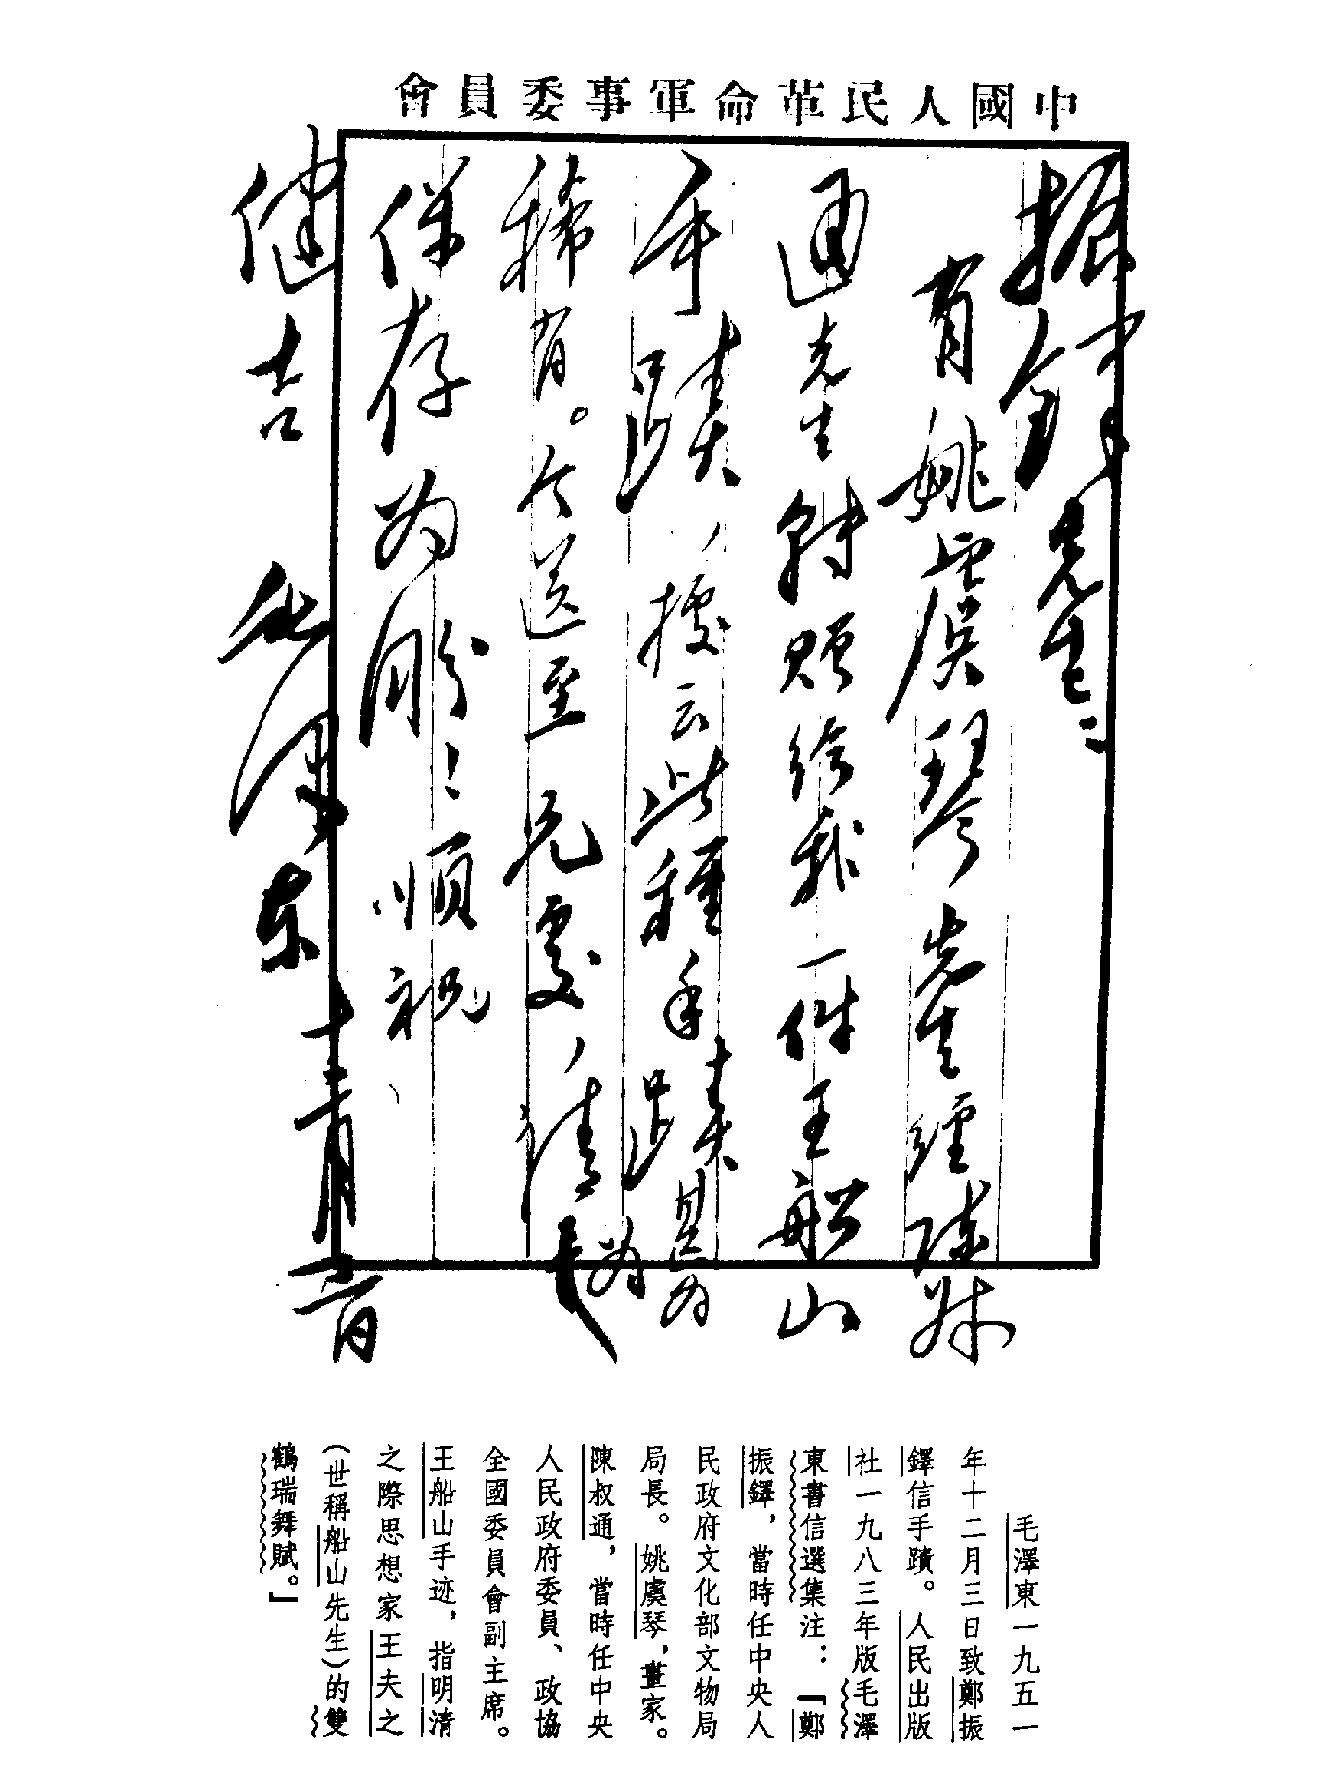 中國人民革命軍事委員會
振鐸先生:
有姚虞琴先生經陳叔
通先生轉贈給我一件王船山
手蹟,據云此種手蹟甚為
稀有。今送至兄處,請為
保存為盼!順祝
健吉
毛澤東
十二月三日
毛澤東一九五一
年十二月三日致鄭振
鐸信手蹟。人民出版
社一九八三年版毛澤
東書信選集注:『鄭
振鐸,當時任中央人
民政府文化部文物局
局長。姚虞琴,畫家。
陳叔通,當時任中央
人民政府委員、政協
全國委員會副主席。
王船山手迹,指明清
之際思想家王夫之
(世稱船山先生)的雙
鶴瑞舞賦。』